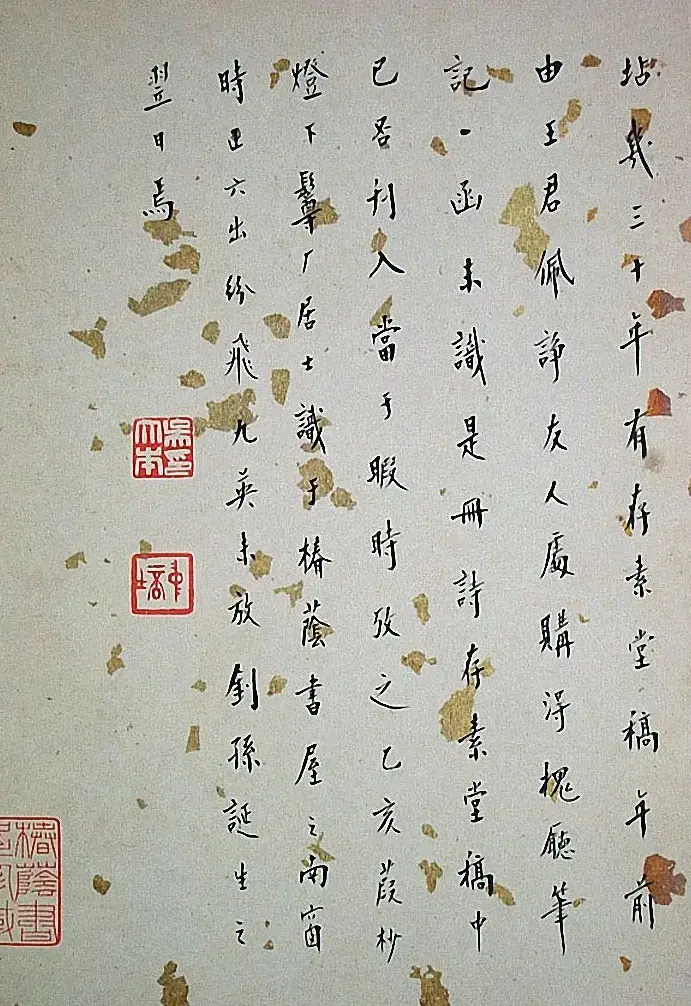 坫幾三十年有存素堂稿年前
由王君佩諍友人處購淂槐廳筆
記一函未識是冊詩存素堂稿中
已否刊入當于暇時攷之乙亥葭杪
燈下鬡厂居士識于椿蔭書屋之南窗
時正六出紛飛九英未放釗孫誕生之
翌日焉
椿蔭書